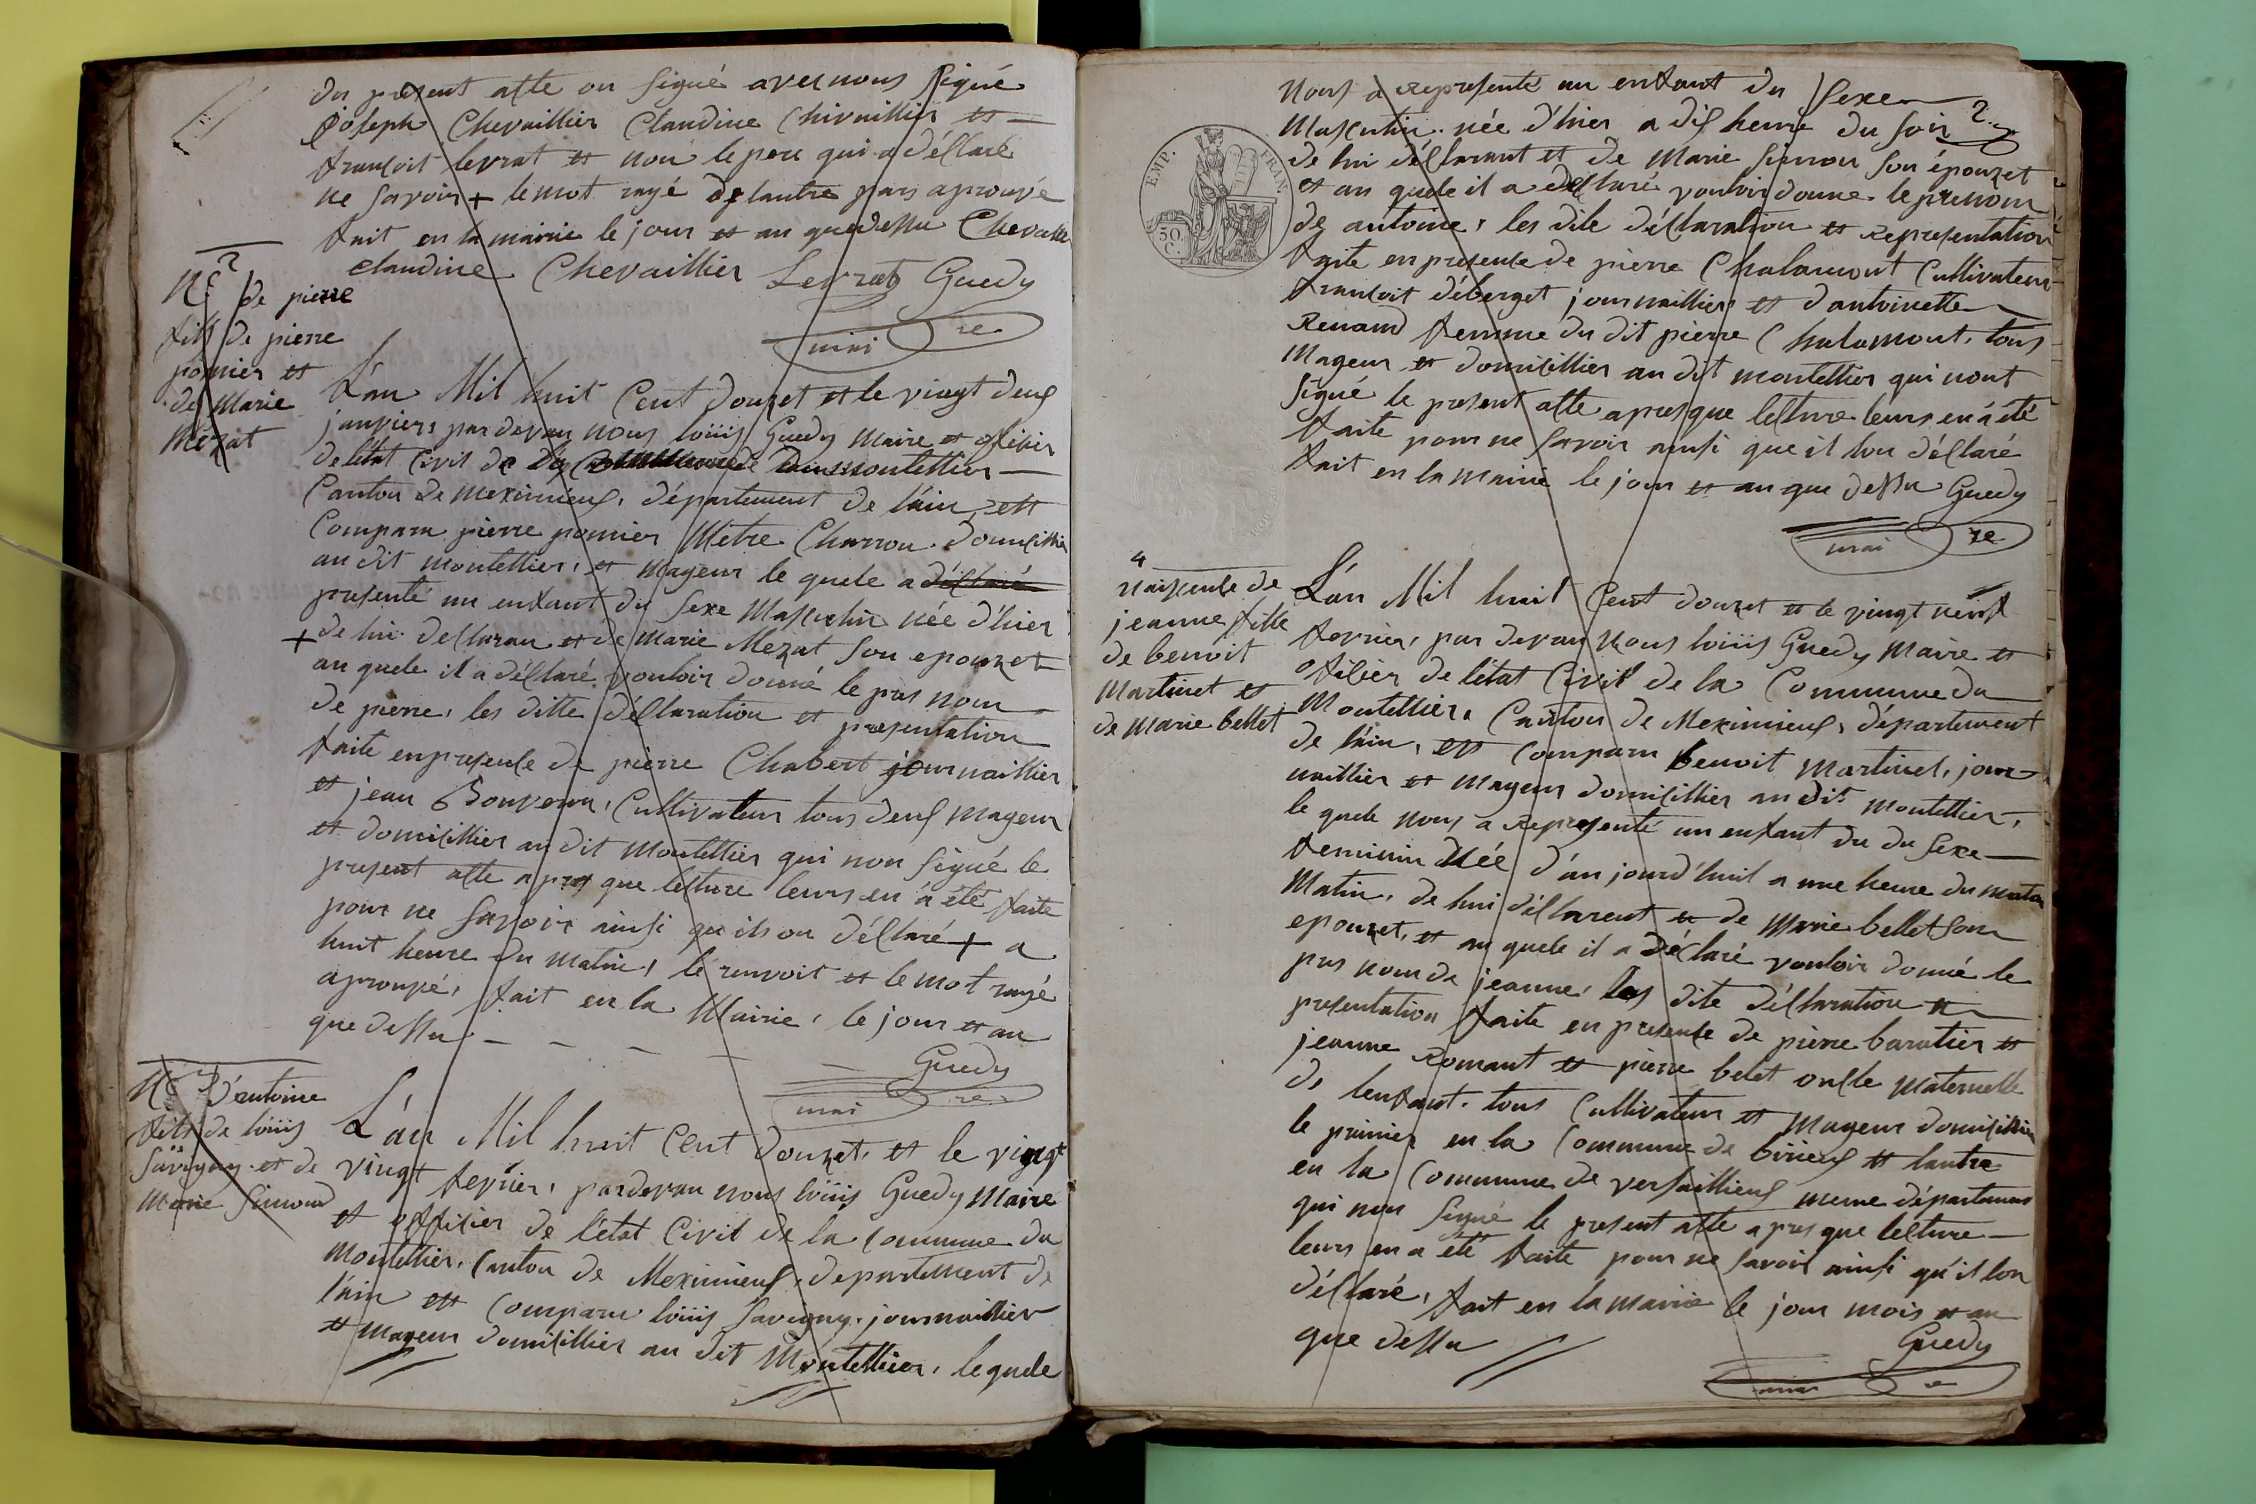 du present acte on signé avec nous signé
joseph Chevaillier Claudine Chivaillier et
francoit levrat et non le pere qui a déclaré
ne savoir + le mot rayé de lautre pars aprouvé
fait en la mairie le jour et an que dessu Chevallie
claudine Chevaillier Levrat Guedy
mai re
Nce 2 de pierre
fils de pierre
pomier et
de Marie
Mezat
L'an Mil huit Cent douzet et le vingt deux
janvier, par devan nous loüis Guedy Maire et officier
de létat Civil de montellier
Canton de meximieux, département de l'ain, est
Comparu pierre pomier Métre Charron domicillié
au dit montellier, et mageur le quele a déclaré
presenté un enfant du sexe Masculin née d'hier
+ de lui declaran et de marie Mezat son epouzet
au quele il a déclaré vouloir donné le pres nom
de pierre, les ditte déclaration et presentation
faite en presence de pierre Chabert journaillier
et jean Bouveron, Cultivateur tous deux mageur
et domicillier au dit montellier qui non signé le
present acte apres que lecture leurs en a été faite
pour ne savoir ainsi qu'ils on déclaré + a
huit heure du matin, le renvoit et le mot rayé
aprouvé, fait en la Mairie, le jour et an
que dessu
Guedy
mai re
Nce 3 d'antoine
fils de loüis
Savigny et de
Marie Simond
L'an Mil huit Cent douzet, et le vingt
vingt fevrier, pardevan nous loüis Guedy Maire
et officier de létat Civil de la Commune du
montellier, Canton de Meximieux, departement de
l'ain est Comparu loüis Savigny, journaillier
et mageur domicillier au dit Montellier, le quele
nous a representé un enfant du sexe
Masculin née d'hier a dix heure du soir
de lui déclarant et de Marie simon son épouzet
et au quele il a déclaré vouloir donne le prenom
de antoine, les dite déclaration et representation
faite en presence de pierre Chalamont Cultivateur
francoit déberget journaillier et d'antoinette
Renand femme du dit pierre Chalamont, tous
Mageur et domicillier au dit montellier qui nont
signé le present acte apres que lecture leurs en a été
faite pour ne savoir ainsi que il lon déclaré
fait en la mairie le jour et an que dessu Guedy
mai re
EMP. FRAN.
50 C.
4
naiscence de
jeanne fille
de benoit
Martinet et
de Marie bellet
L'an Mil huit Cent douzet et le vingt neuf
fevrier, par devan Nous loüis Guedy Maire et
officier de létat Civil de la Commune du
Montellier, Canton de Meximieux, département
de l'ain, est comparu benoit Martinet, jour-
naillier et mageur domicillier au dit montellier,
le quele nous a representé un enfant du du sexe
feminin Née d'au jourd'huit a une heure du matin
Matin, de lui déclarent et de Marie bellet son
epouzet, et au quele il a déclaré vouloir donné le
pres nom de jeanne, les dite déclaration et
presentation faite en presence de pierre baratier et
jeanne Romant et pierre belet oncle maternelle
de lenfant. tous Cultivateur et mageur domicillier
le primier en la Commune de birieux et lautre
en la Commune de versaillieux meme département
qui non signé le present acte apres que lecture
leurs en a été faite pour ne savoir ainsi qu'il lon
déclaré, fait en la mairie le jour mois et an
que dessu Guedy
mai re